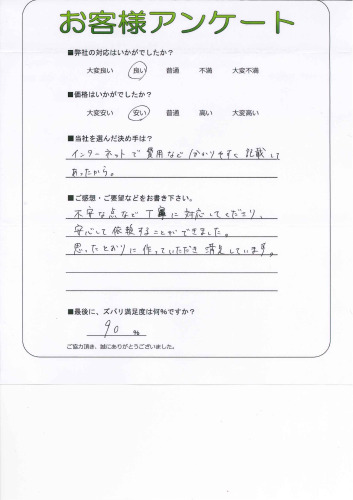 お客様アンケート
■弊社の対応はいかがでしたか？
大変良い 良い 普通 不満 大変不満
■価格はいかがでしたか？
大変安い 安い 普通 高い 大変高い
■当社を選んだ決め手は？
インターネットで費用など分かりやすく記載して
あったから。
■ご感想・ご要望などをお書き下さい。
不安な点など丁寧に対応してくださり、
安心して依頼することができました。
思ったとおりに作っていただき満足しています。
■最後に、ズバリ満足度は何％ですか？
90 ％
ご協力頂き、誠にありがとうございました。